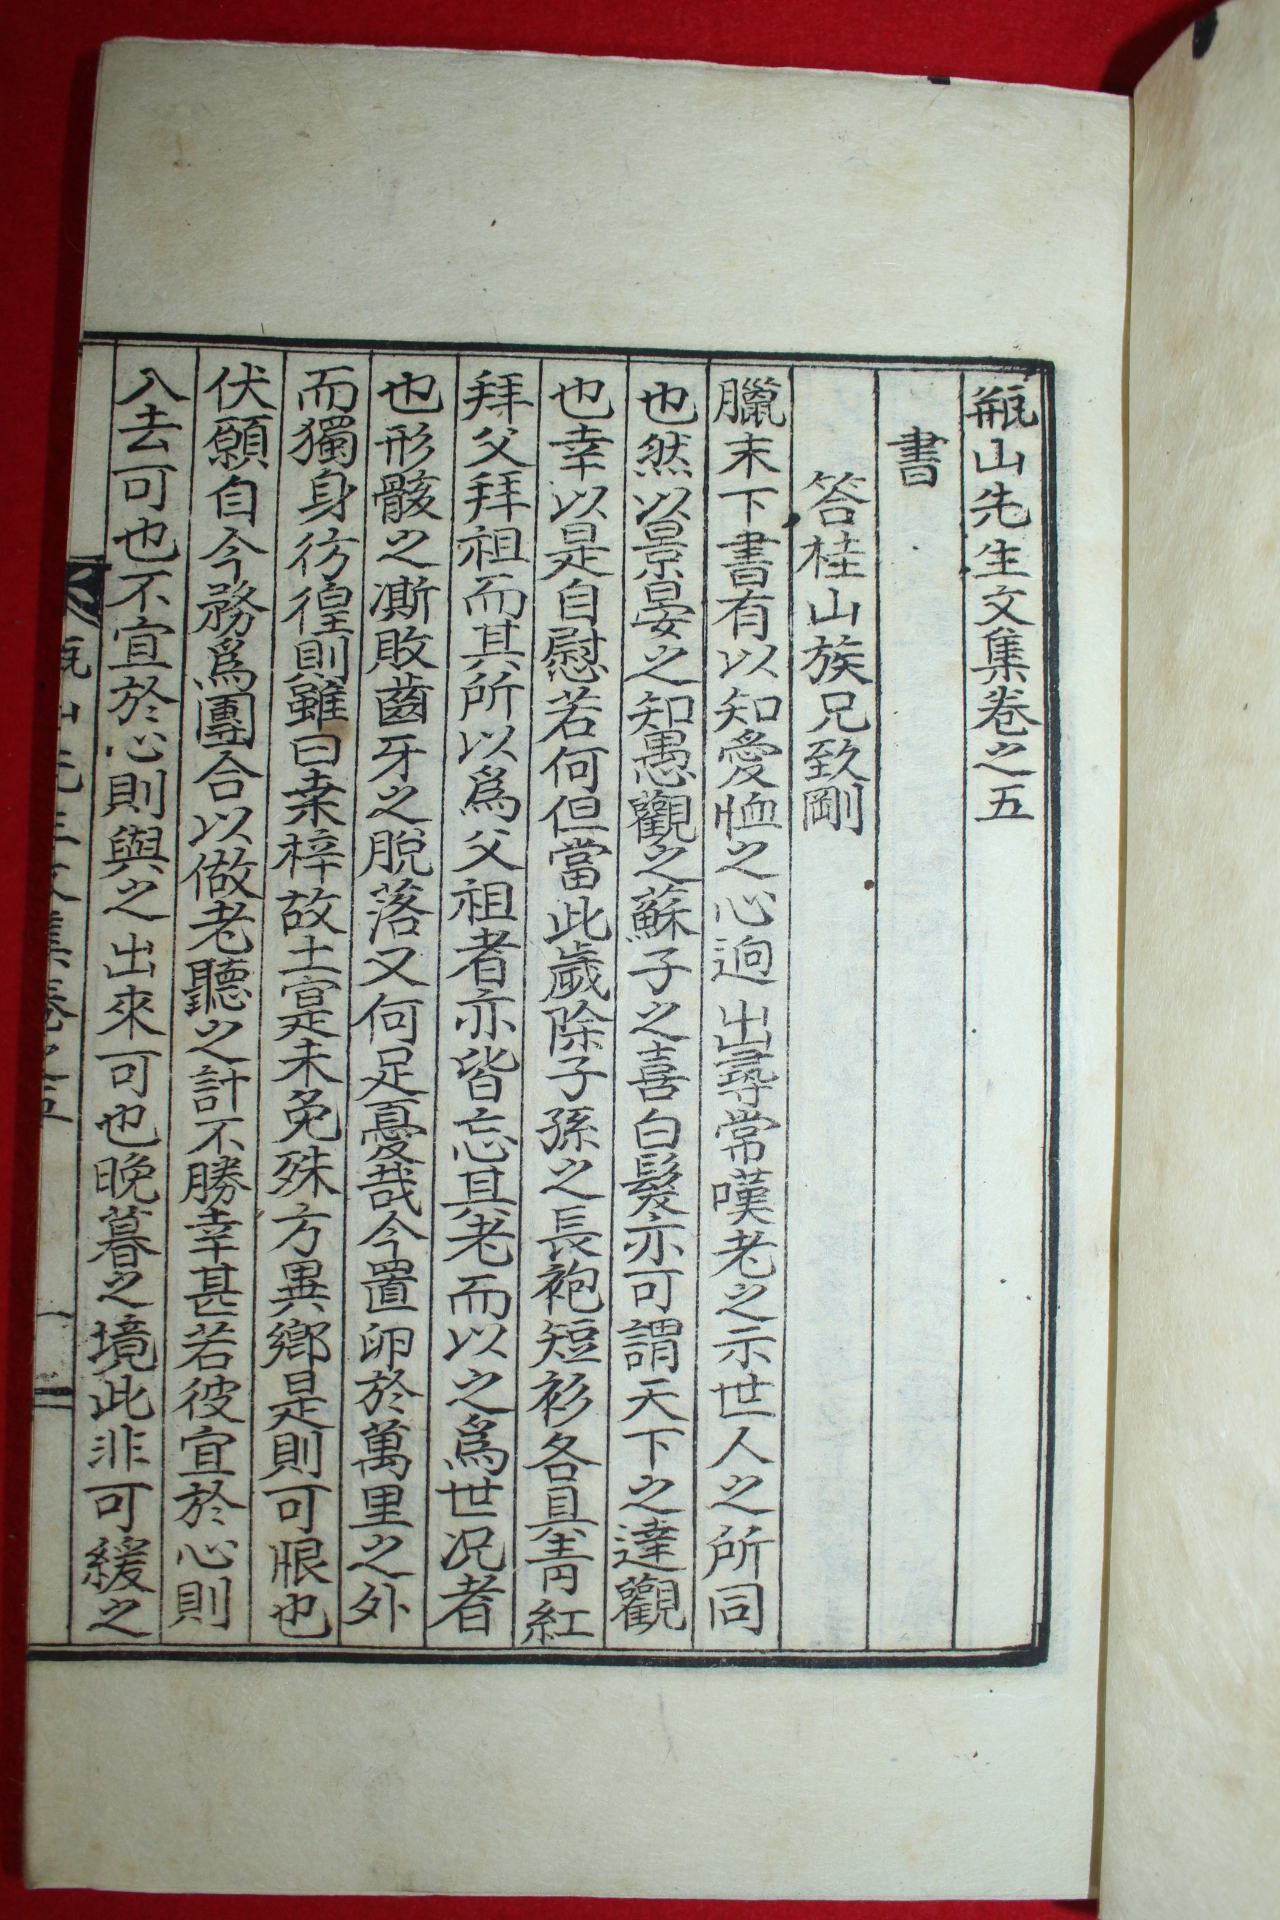 甁山先生文集卷之五
書
答桂山族兄致剛
臘末下書有以知愛恤之心逈出尋常嘆老之示世人之所同
也然以景晏之知愚觀之蘇子之喜白髮亦可謂天下之達觀
也幸以是自慰若何但當此歲除子孫之長袍短衫各具靑紅
拜父拜祖而其所以爲父祖者亦皆忘其老而以之爲世况者
也形骸之凘敗齒牙之脫落又何足憂哉今置卵於萬里之外
而獨身彷徨則雖曰桒梓故土寔未免殊方異鄕是則可恨也
伏願自今務爲團合以做老聽之計不勝幸甚若彼宜於心則
入去可也不宜於心則與之出來可也晩暮之境此非可緩之
甁山先生文集卷之五
一